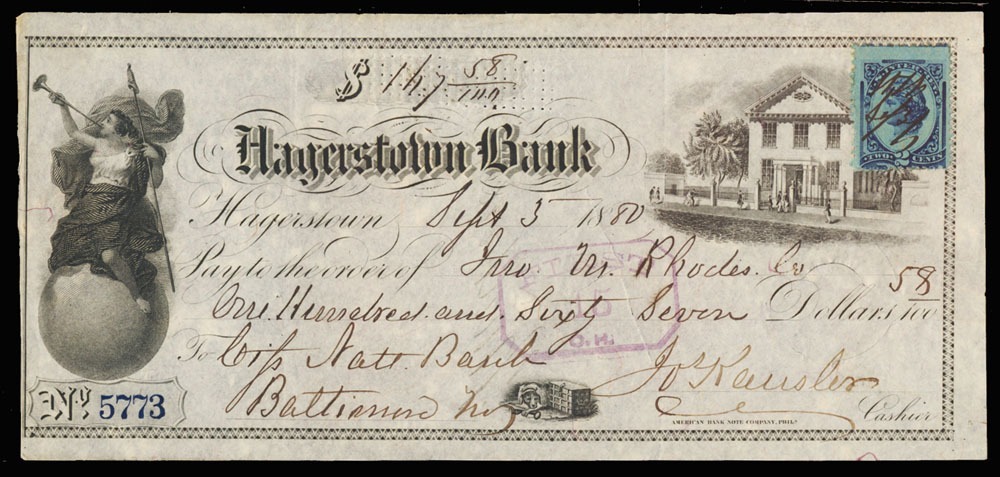 $ 147 58/100
INTER. REV.
TWO 2 CENTS
Hagerstown Bank
Hagerstown Sept 3 1880
Pay to the order of Jno. M. Rhodes. Co 58
One Hundred and Sixty Seven Dollars 100
15
To Citz Natl Bank
Baltimore
No. 5773
Cashier
AMERICAN BANK NOTE COMPANY, PHILA.